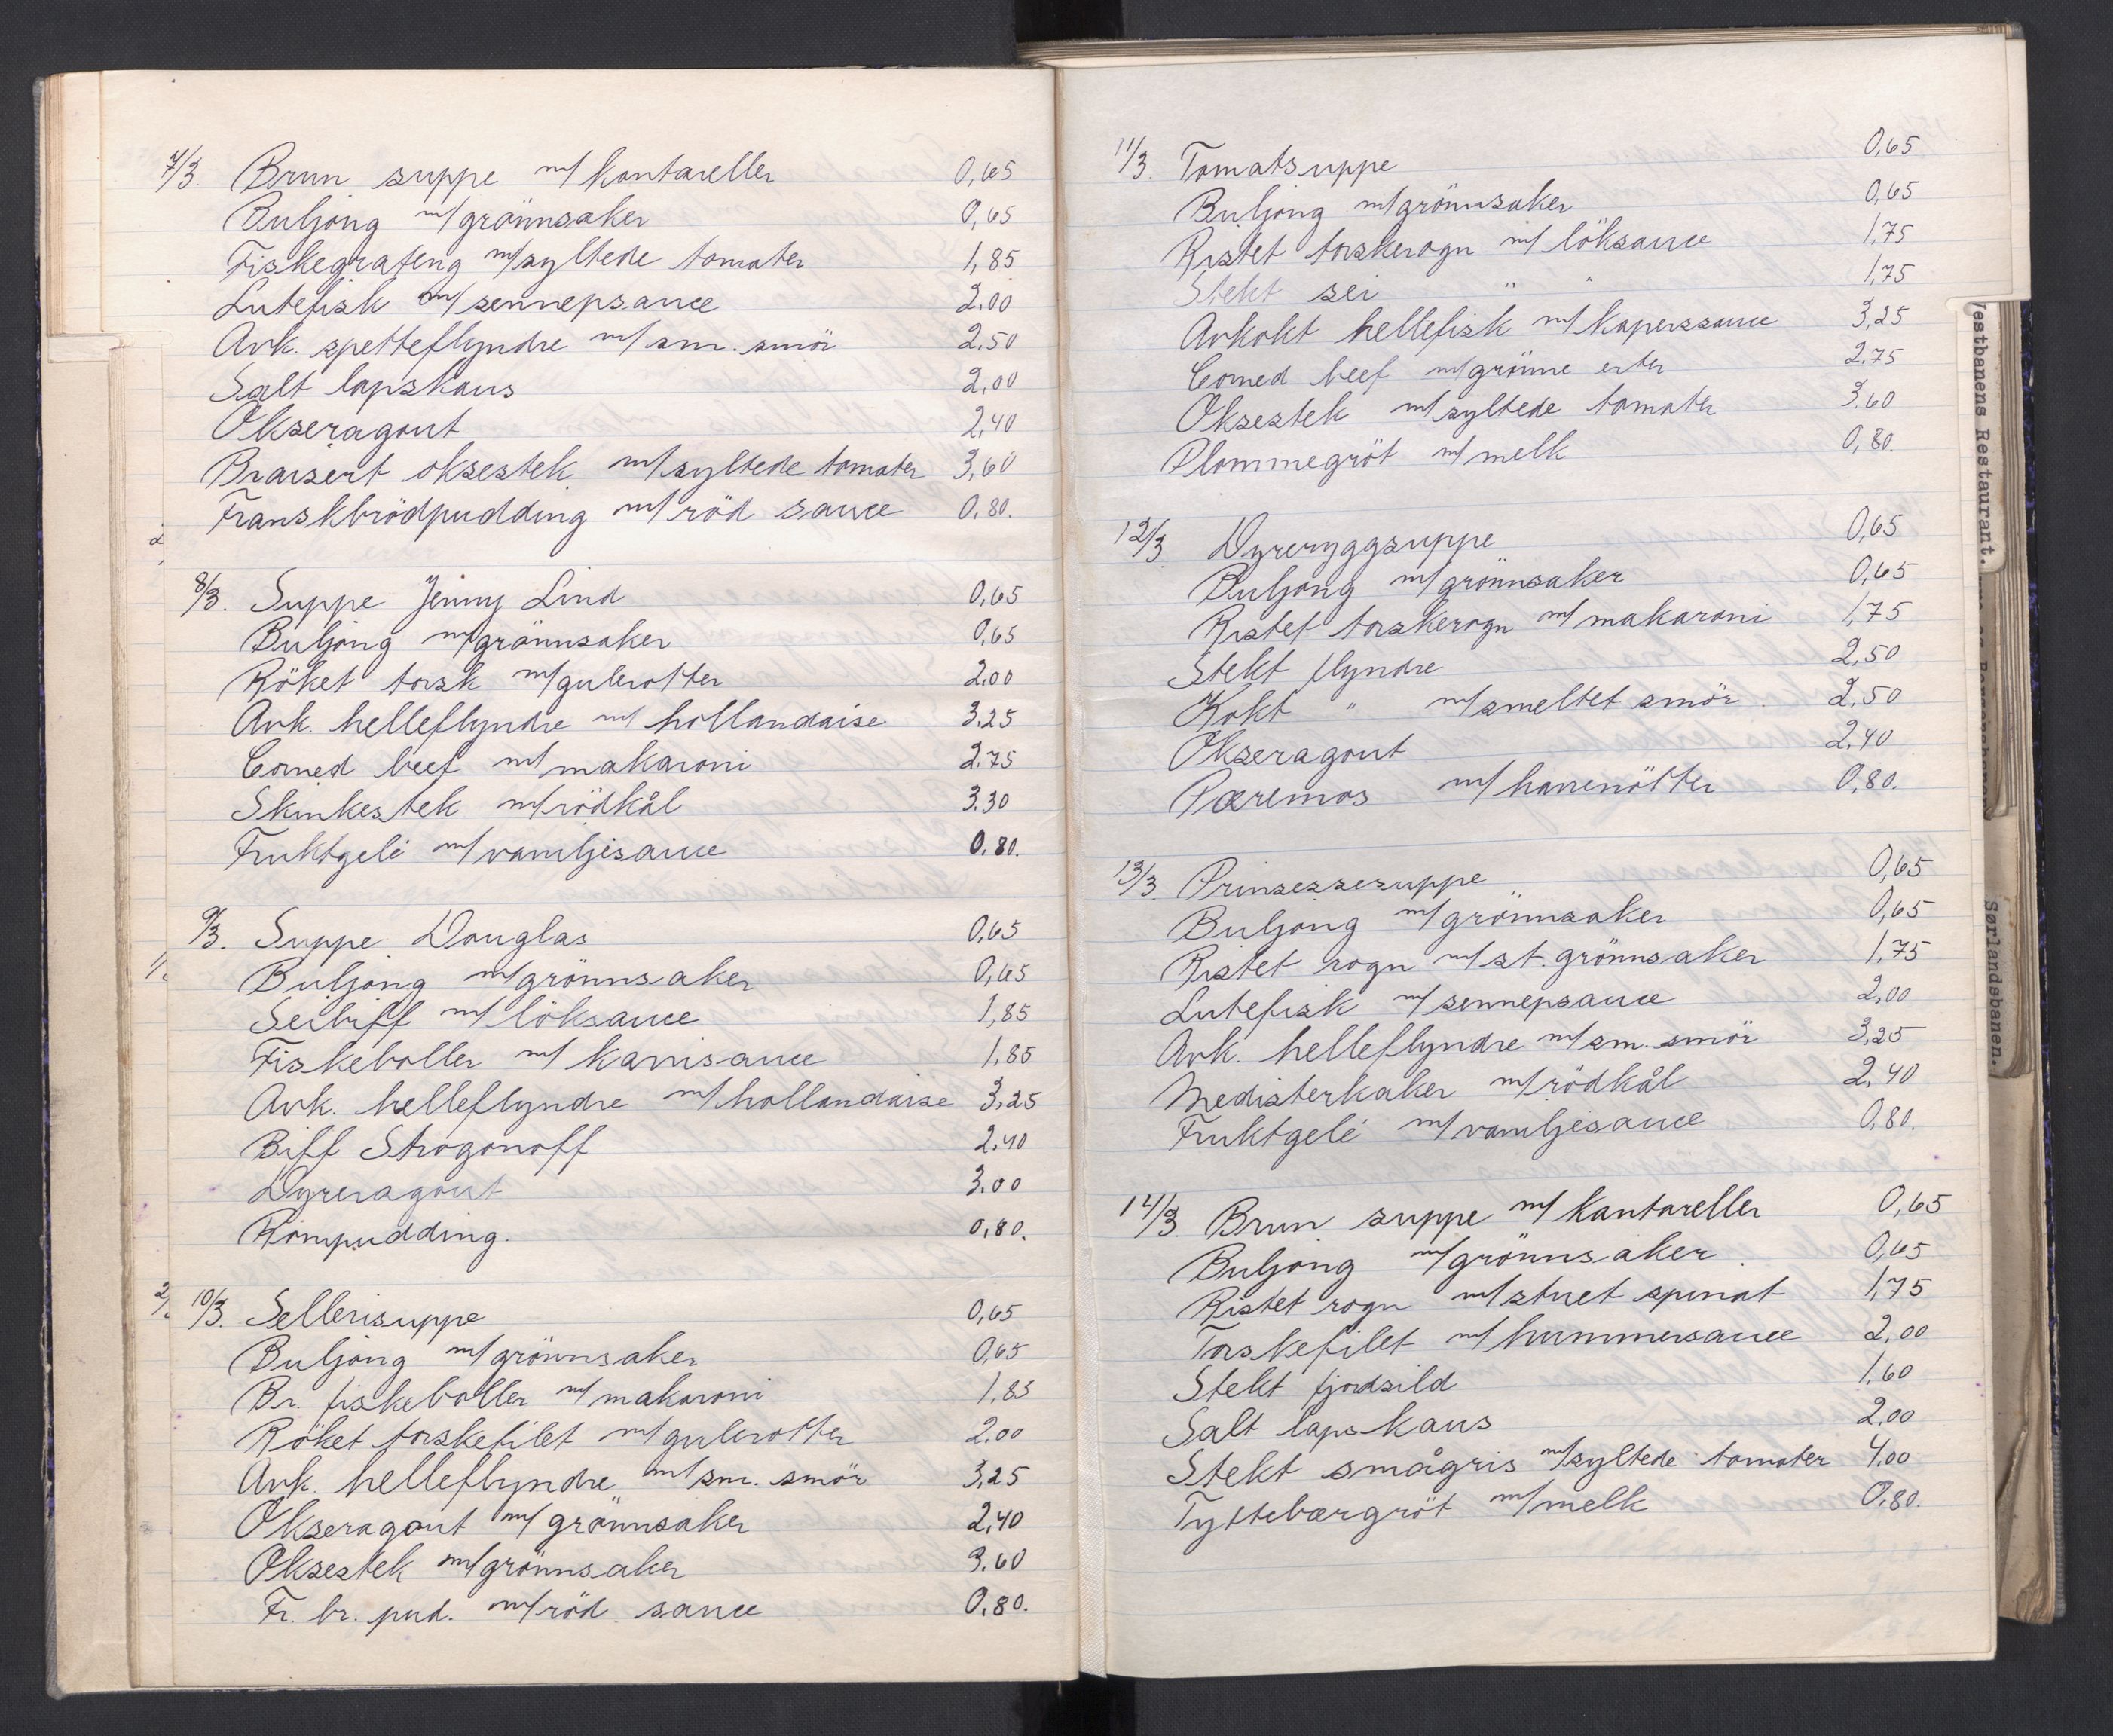 7/3. Brun suppe m/ kantareller 0,65
Buljong m/grönnsaker 0,65
Fiskegrateng m/syltede tomater 1,85
Lutefisk m/sennepsauce 2.00
Avk. spetteflyndre m/sm. smör 2.50
Salt lapskaus 2,00
Okseragout 2,40
Braisert oksestek m/syltede tomater 3,60
Franskbrödpudding m/röd sauce 0.80.
8/3. Suppe Jenny Lind 0,65
Buljong m/grönnsaker 0,65
Röket torsk m/gulerötter 2.00
Avk. helleflyndre m/ hollandaise 3.25
Corned beef m/ makaroni 2.75
Skinkestek m/rödkål 3.30
Fruktgelé m/vaniljesauce 0.80.
9/3. Suppe Douglas 0,65
Buljong m/grönnsaker 0,65
Seibiff m/ löksauce 1,85
Fiskeboller m/ karrisauce 1,85
Avk. helleflyndre m/hollandaise 3,25
Biff Strogonoff 2,40
Dyreragout 3.00
Rompudding. 0,80.
10/3. Sellerisuppe 0,65
Buljong m/grönnsaker 0,65
Br. fiskeboller m/ makaroni 1,85
Röket torskefilet m/gulerötter 2.00
Avk. helleflyndre m/sm. smör 3,25
Okseragout m/ grönnsaker 2,40
Oksestek m/grönnsaker 3.60
Fr. br. pud. m/röd sauce 0.80.
11/3. Tomatsuppe 0,65
Buljong m/grönnsaker 0,65
Ristet torskerogn m/ löksauce 1,75
Stekt sei " " 1,75
Avkokt hellefisk m/ kaperssauce 3,25
Corned beef m/grönne erter 2,75
Oksestek m/syltede tomater 3.60
Plommegröt m/melk 0,80.
12/3 Dyreryggsuppe 0,65
Buljong m/grönnsaker 0,65
Ristet torskerogn m/ makaroni 1,75
Stekt flyndre 2,50
Kokt " m/smeltet smör. 2,50
Okseragout 2,40
Pæremos m/hasenötter 0,80.
13/3. Prinsessesuppe 0,65
Buljong m/grönnsaker 0,65
Ristet rogn m/st. grönnsaker 1,75
Lutefisk m/sennepsauce 2,00
Avk. helleflyndre m/sm. smör 3,25
Medisterkaker m/rödkål 2,40
Fruktgelé m/vaniljesauce 0,80.
14/3. Brun suppe m/ kantareller 0,65
Buljong m/grönnsaker 0,65
Ristet rogn m/stuet spinat 1,75
Torskefilet m/hummersauce 2,00
Stekt fjordsild 1,60
Salt lapskaus 2,00
Stekt smågris m/syltede tomater 4,00
Tyttebærgröt m/melk 0,80.
Vestbanens Restaurant.
Sørlandsbanen.